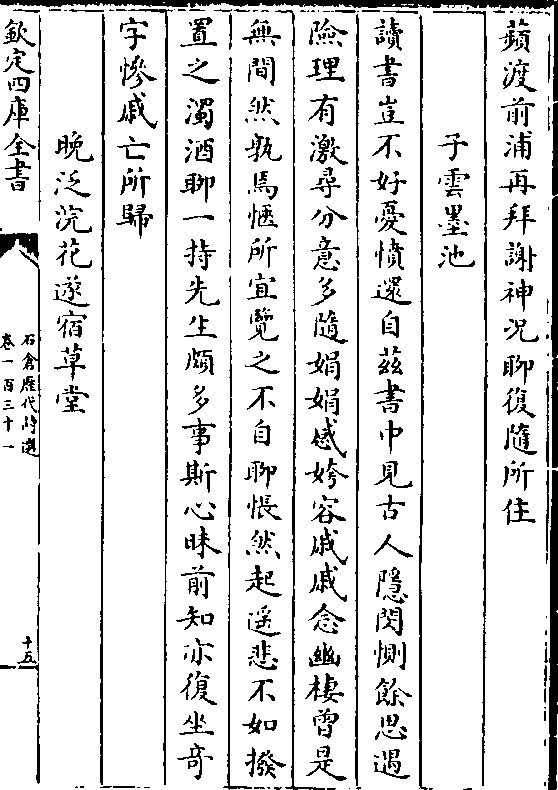 蘋渡前浦再拜謝神况聊復隨所住
子雲墨池
讀書豈不好憂憤還自茲書中見古人隱閔惻餘思遇
險理有激尋分意多隨娟娟感姱容戚戚念幽棲曾是
無間然孰焉愜所宜覽之不自聊悵然起遥悲不如撥
置之濁酒聊一持先生頗多事斯心昧前知亦復坐奇
字慘戚亡所歸
晚泛浣花遂宿草堂
欽定四庫全書
石倉歴代詩選
卷一百三十一
十五